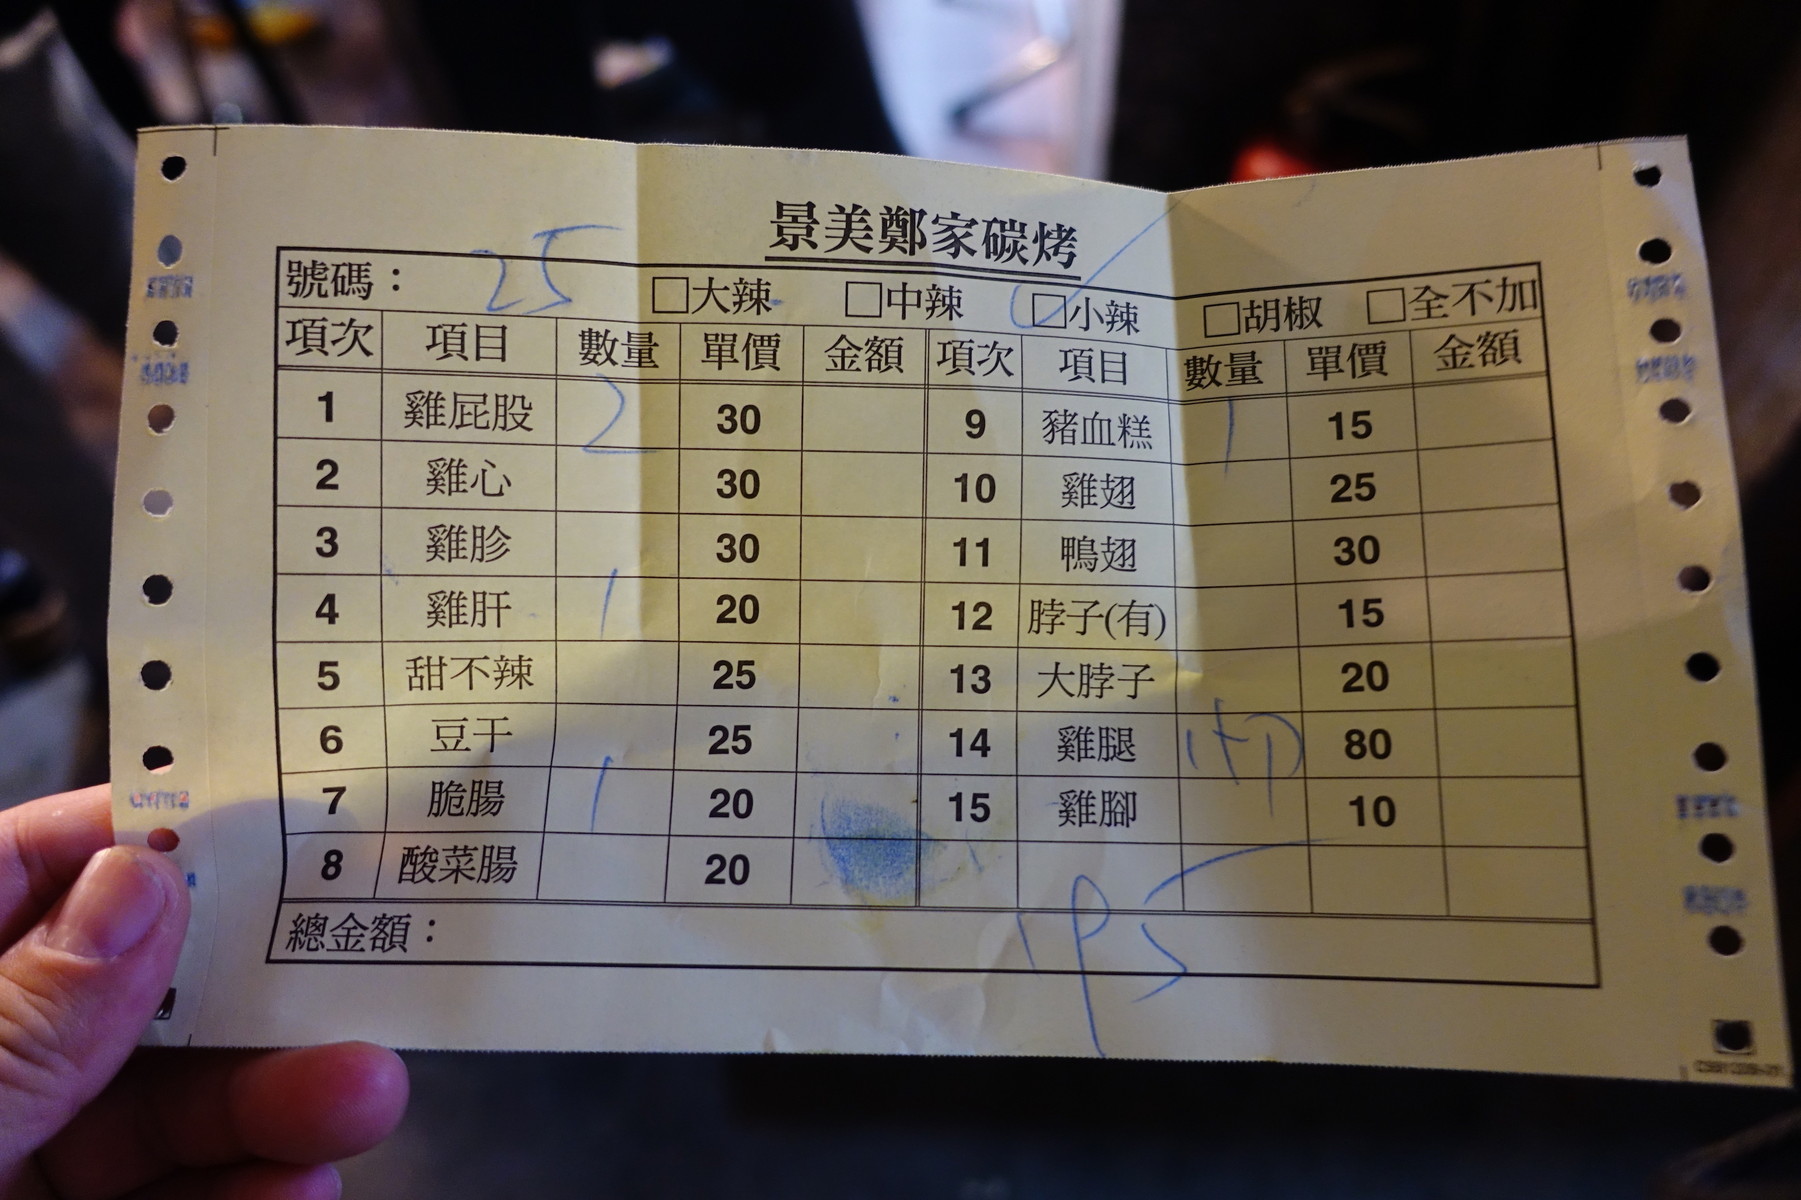 景美鄭家碳烤
號碼： 25 □大辣 □中辣 □小辣 ✓ □胡椒 □全不加
項次 項目 數量 單價 金額 項次 項目 數量 單價 金額
1 雞屁股 2 30 9 豬血糕 1 15
2 雞心 30 10 雞翅 25
3 雞胗 30 11 鴨翅 30
4 雞肝 1 20 12 脖子(有) 15
5 甜不辣 25 13 大脖子 20
6 豆干 25 14 雞腿 80
7 脆腸 1 20 15 雞腳 10
8 酸菜腸 20
總金額： 195